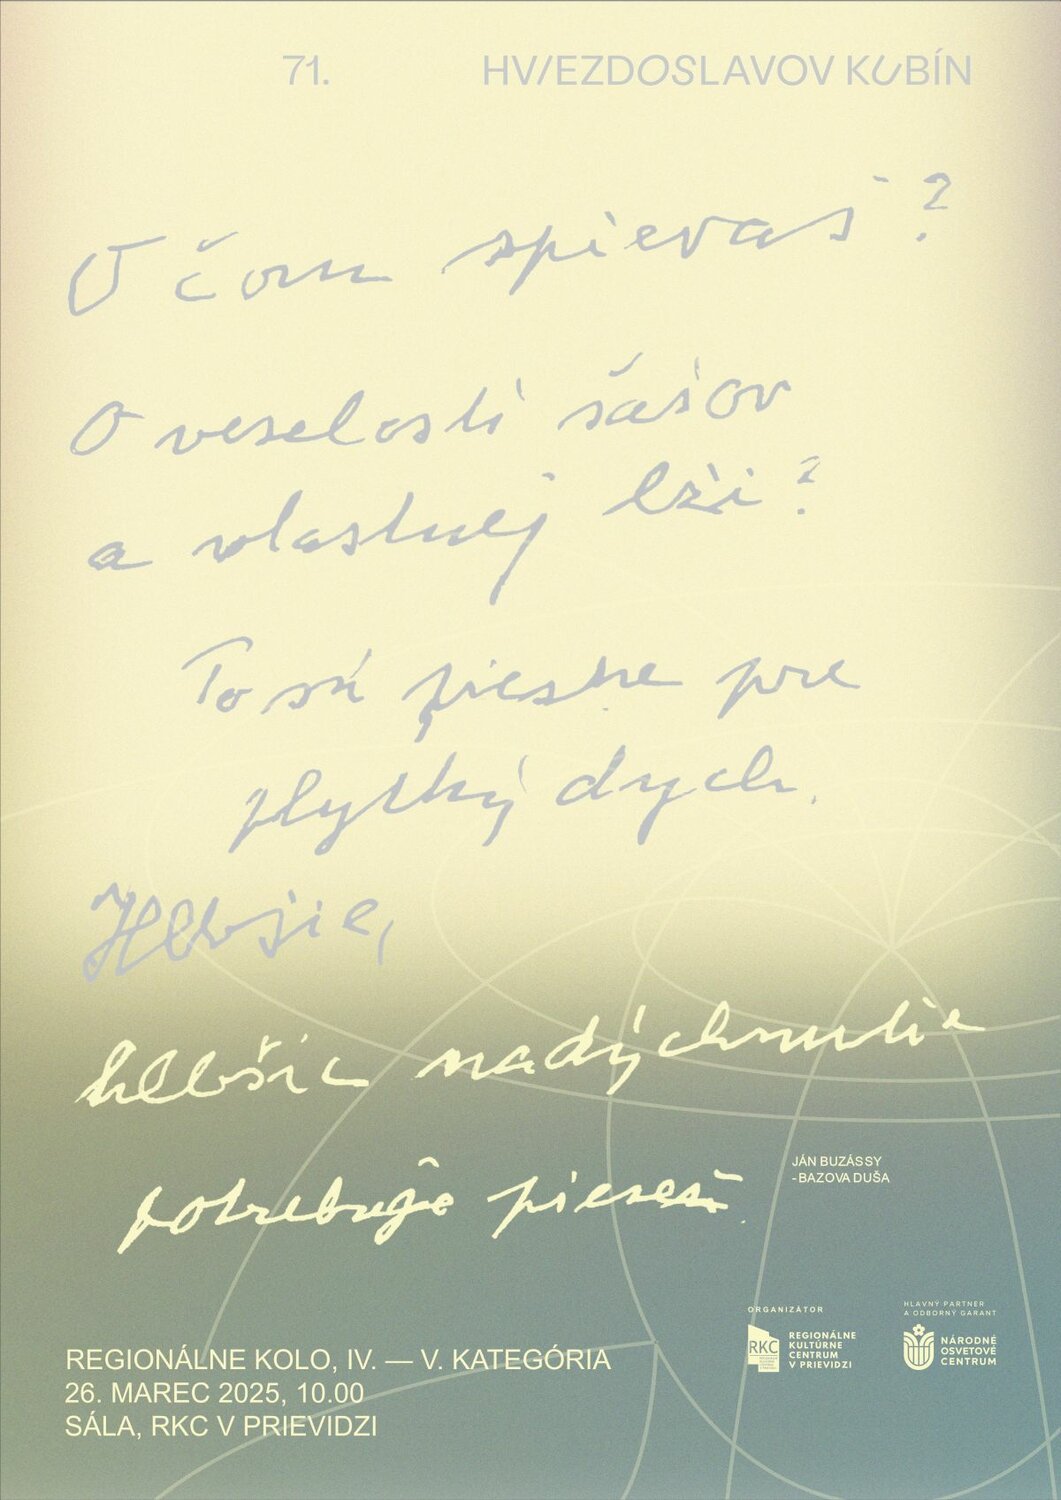 71. HVIEZDOSLAVOV KUBÍN
O čom spievaš?
O veselosti šašov
a vlastnej lži?
To sú piesne pre
plytký dych.
Hlbšie,
hlbšie nadýchnutie
potrebuje pieseň.
JÁN BUZÁSSY
-BAZOVA DUŠA
ORGANIZÁTOR
RKC
REGIONÁLNE
KULTÚRNE
CENTRUM
V PRIEVIDZI
HLAVNÝ PARTNER
A ODBORNÝ GARANT
NÁRODNÉ
OSVETOVÉ
CENTRUM
REGIONÁLNE KOLO, IV. — V. KATEGÓRIA
26. MAREC 2025, 10.00
SÁLA, RKC V PRIEVIDZI